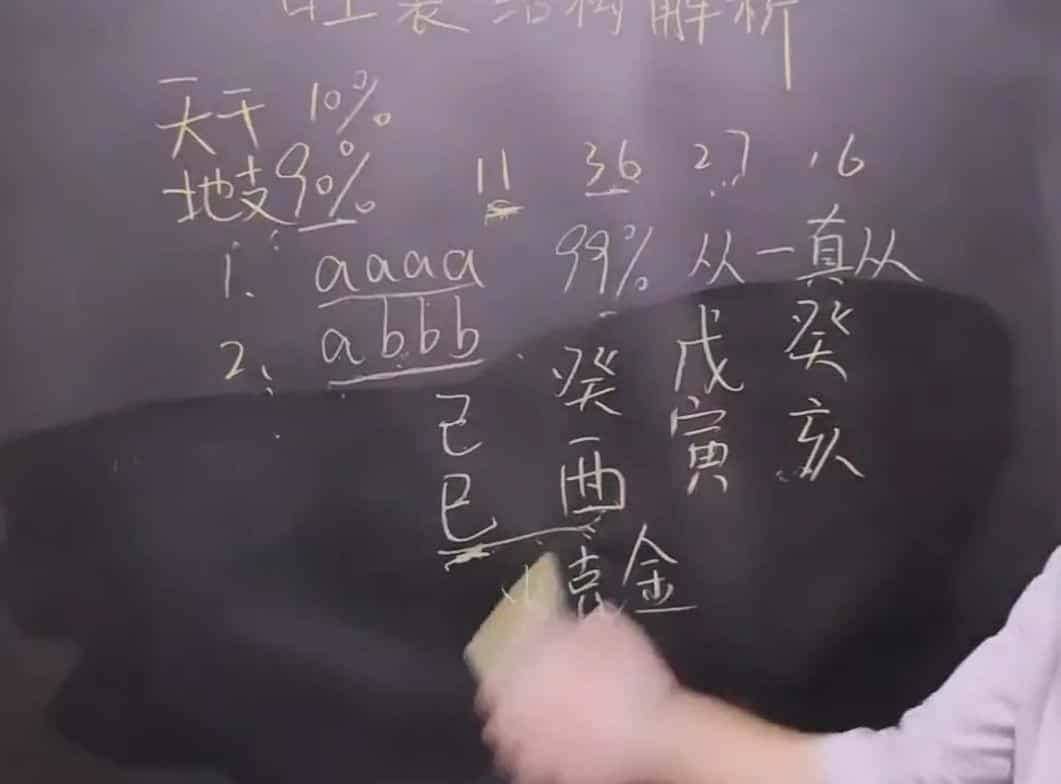 旺衰结构解析
天干 10%
地支90%
11 36 27 16
1、aaaa 99% 从一真从
2、abbb
己 癸 戊 癸
巳 酉 寅 亥
克金